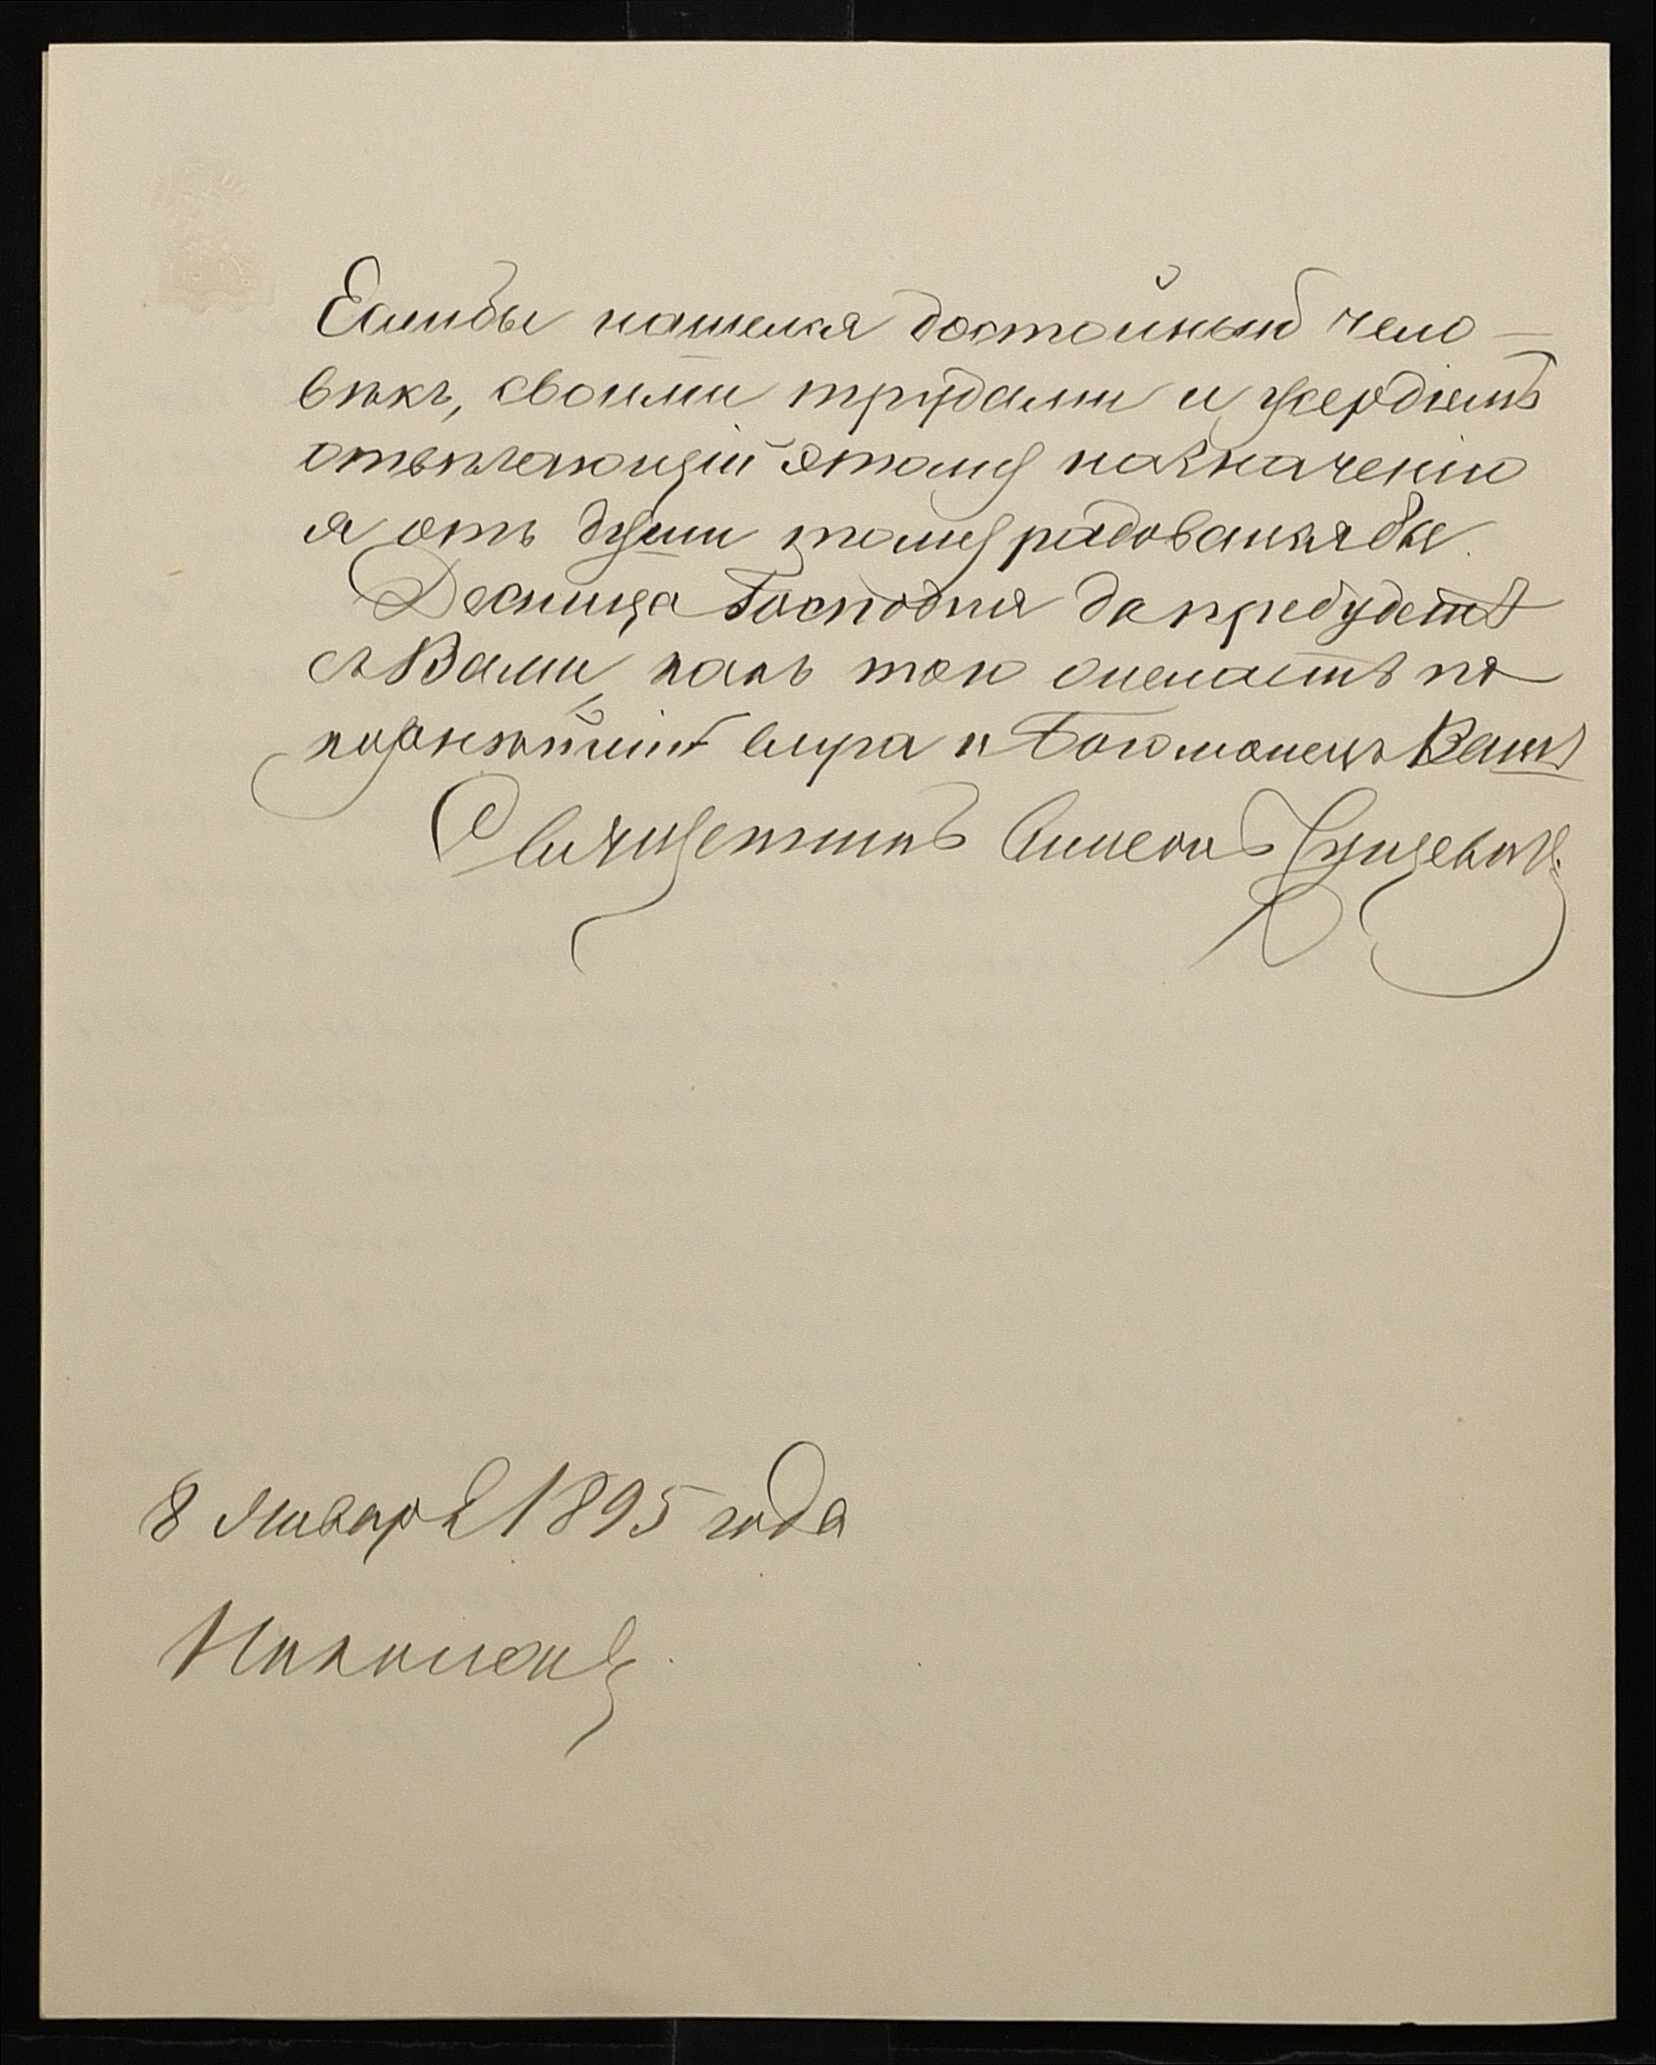 Еслибы нашелся достойный чело-
вѣкъ, своими трудами и усердіемъ
отвѣчающій этому назначенію
я отъ души тому радовался бы.
Десница Господня да пребудетъ
съ Вами, какъ того желаетъ по
корнѣйшій слуга и Богомолецъ Вашъ
Священникъ Симеонъ
8 Января 1895 года